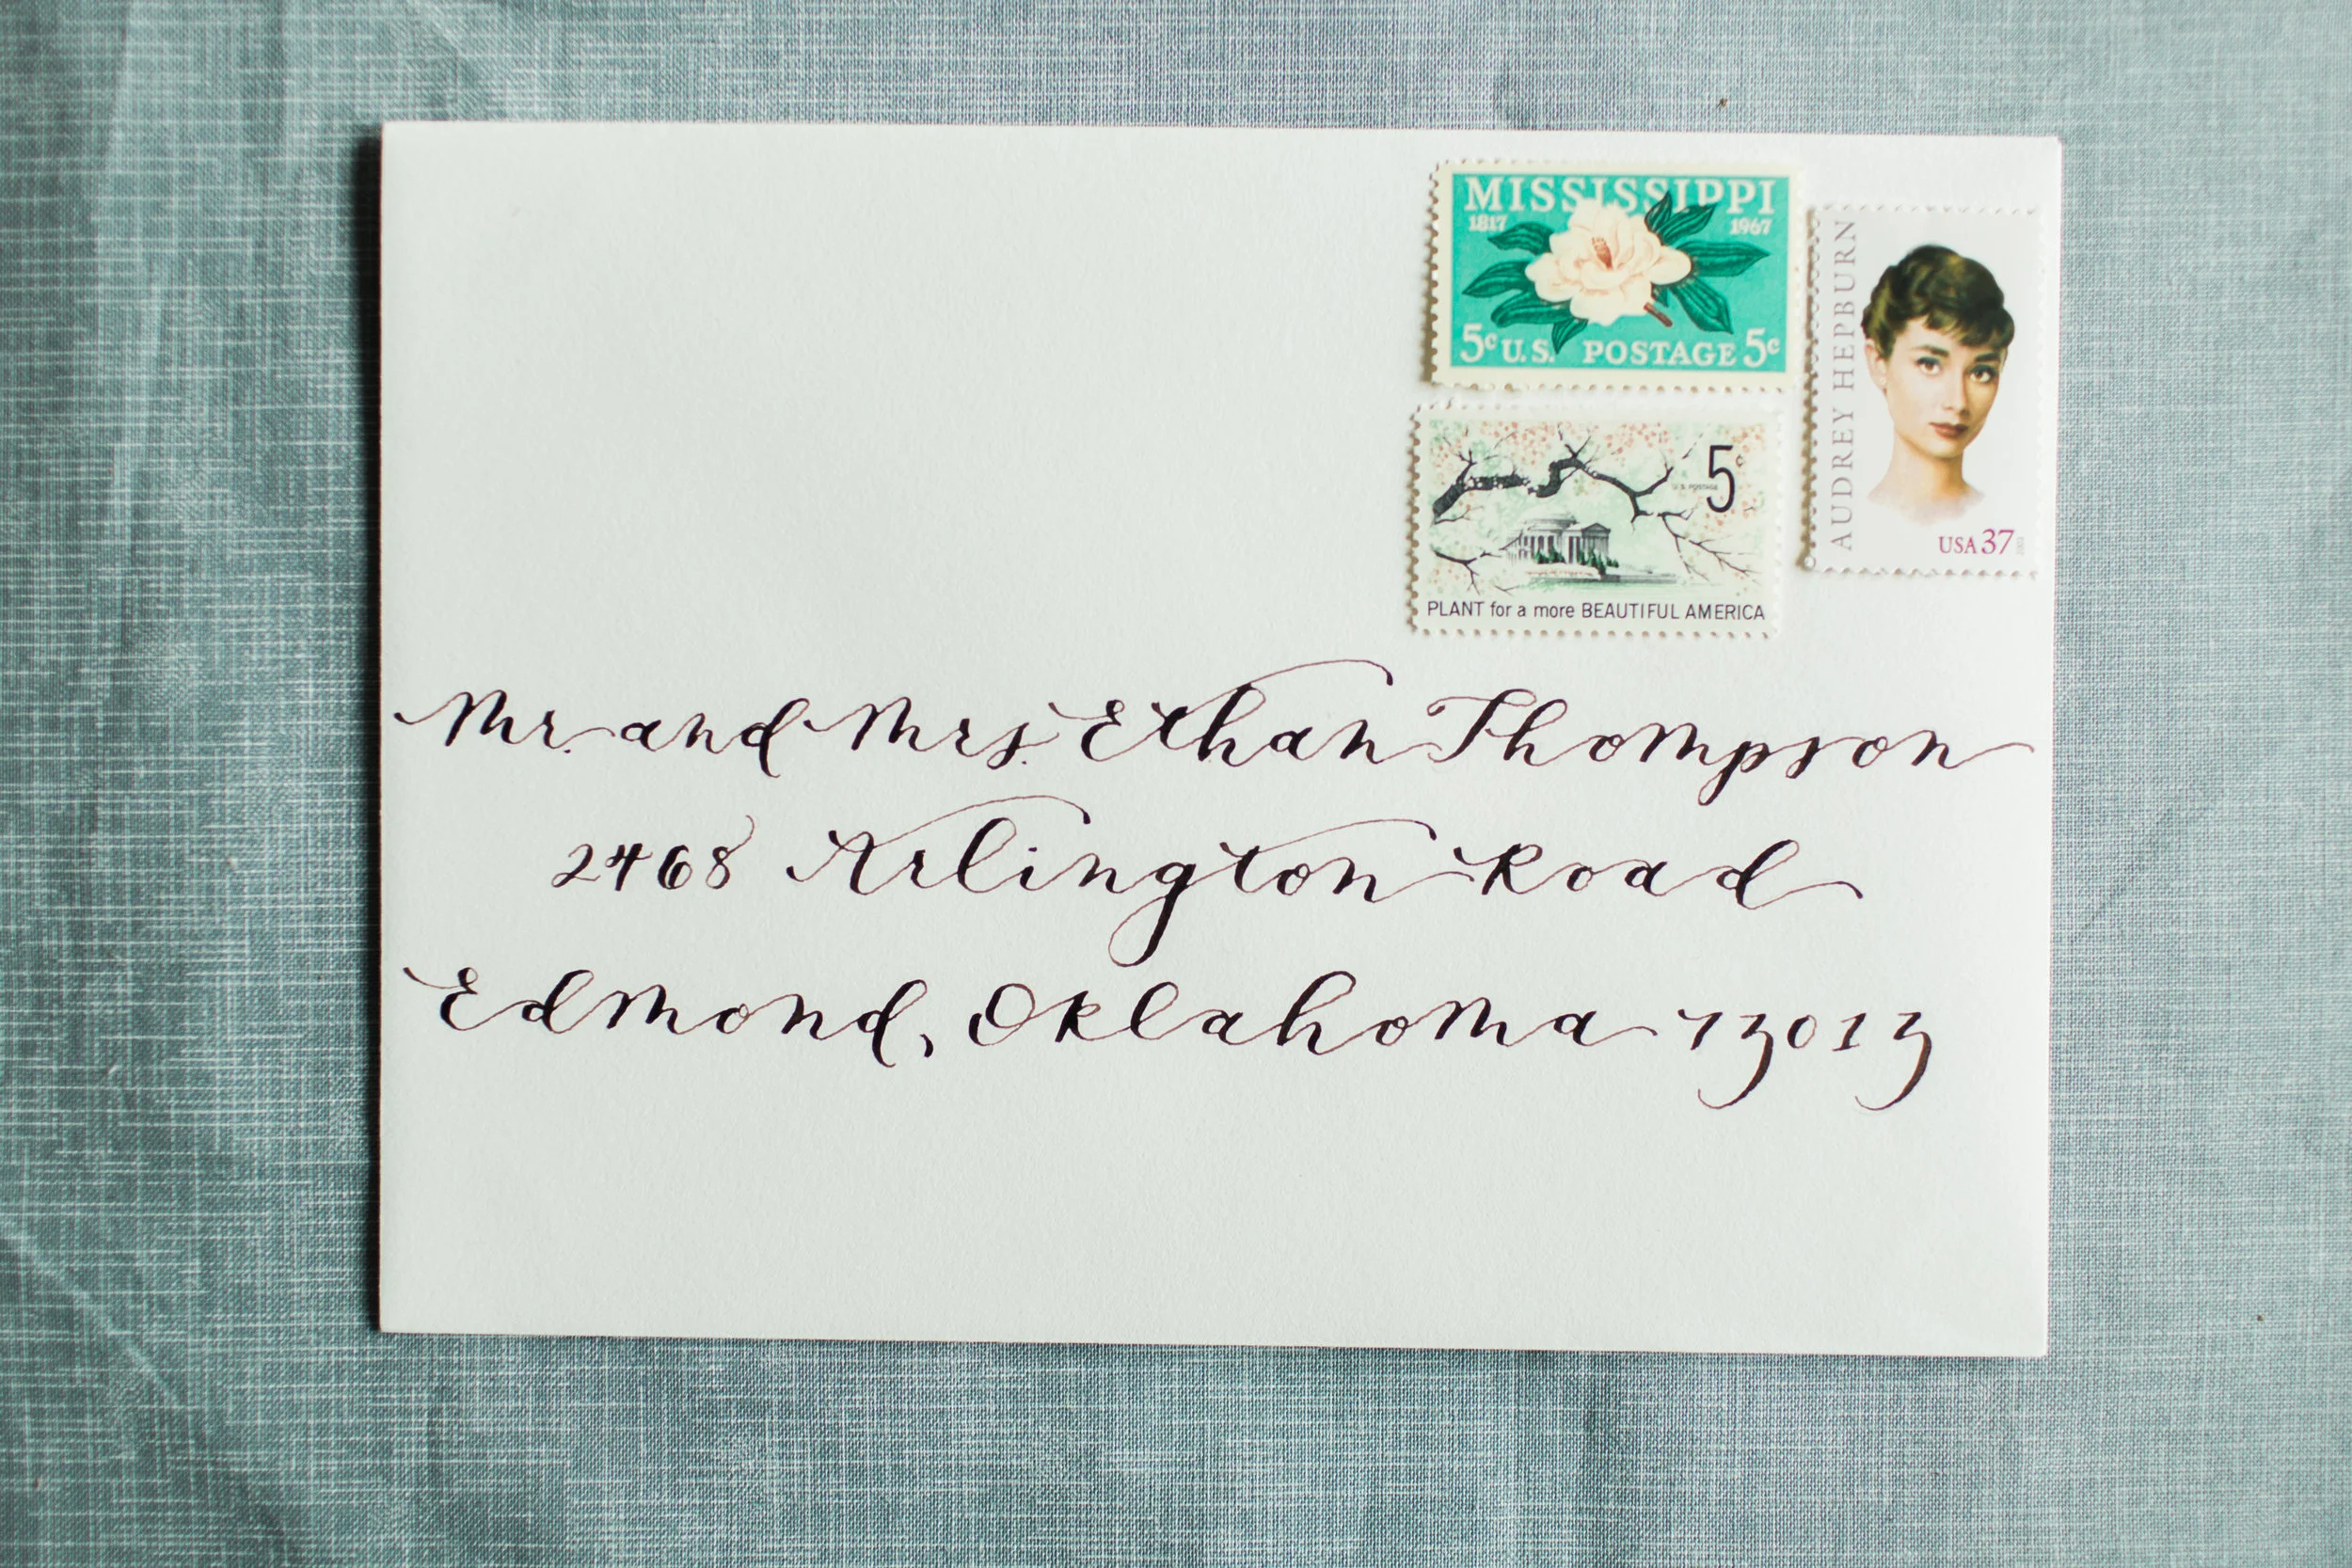 MISSISSIPPI
1817 1967
5c U.S. POSTAGE 5c
AUDREY HEPBURN
USA 37
5c
U.S. POSTAGE
PLANT for a more BEAUTIFUL AMERICA
Mr. and Mrs. Ethan Thompson
2468 Arlington Road
Edmond, Oklahoma 73013